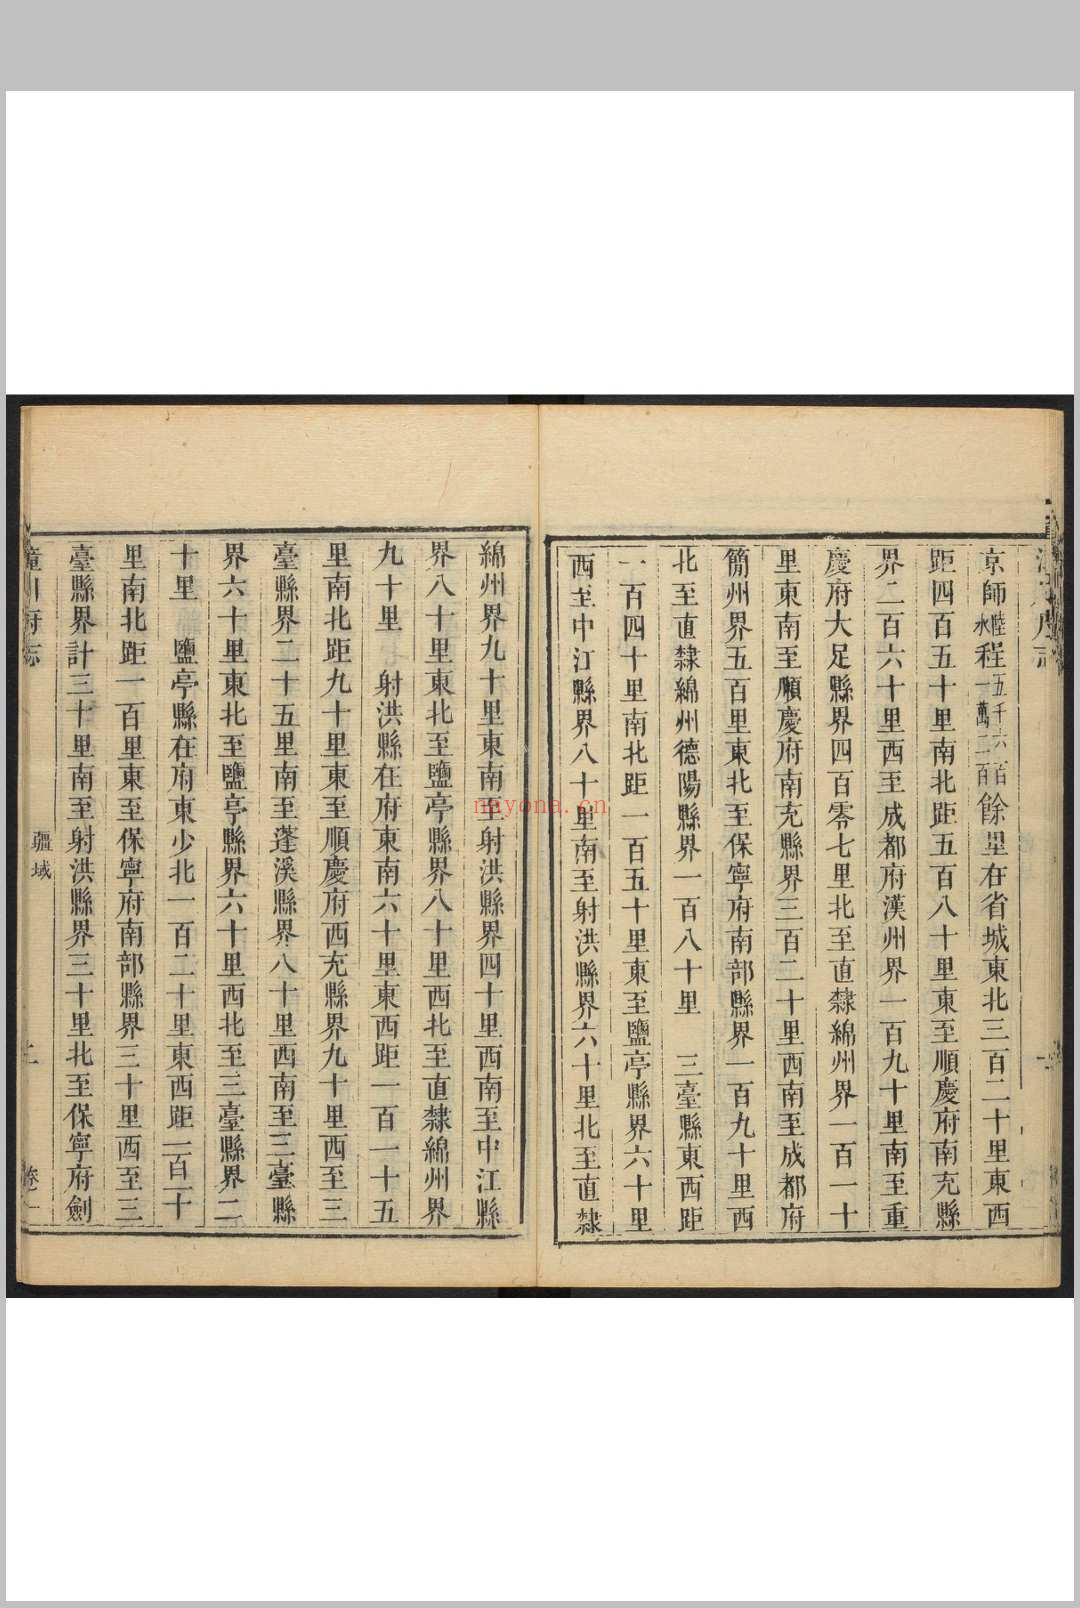 京師陸水程五千六百一萬二百餘里在省城東北三百二十里東西
距四百五十里南北距五百八十里東至順慶府南充縣
界二百六十里西至成都府漢州界一百九十里南至重
慶府大足縣界四百零七里北至直隸綿州界一百一十
里東南至順慶府南充縣界三百二十里西南至成都府
簡州界五百里東北至保寧府南部縣界一百九十里西
北至直隸綿州德陽縣界一百八十里　三臺縣東西距
一百四十里南北距一百五十里東至鹽亭縣界六十里
西至中江縣界八十里南至射洪縣界六十里北至直隸
綿州界九十里東南至射洪縣界四十里西南至中江縣
界八十里東北至鹽亭縣界八十里西北至直隸綿州界
九十里　射洪縣在府東南六十里東西距一百一十五
里南北距九十里東至順慶府西充縣界九十里西至三
臺縣界二十五里南至蓬溪縣界八十里西南至三臺縣
界六十里東北至鹽亭縣界六十里西北至三臺縣界二
十里　鹽亭縣在府東少北一百二十里東西距一百十
里南北距一百里東至保寧府南部縣界三十里西至三
臺縣界計三十里南至射洪縣界三十里北至保寧府劍
潼川府志　疆域　卷一
nayona.cn